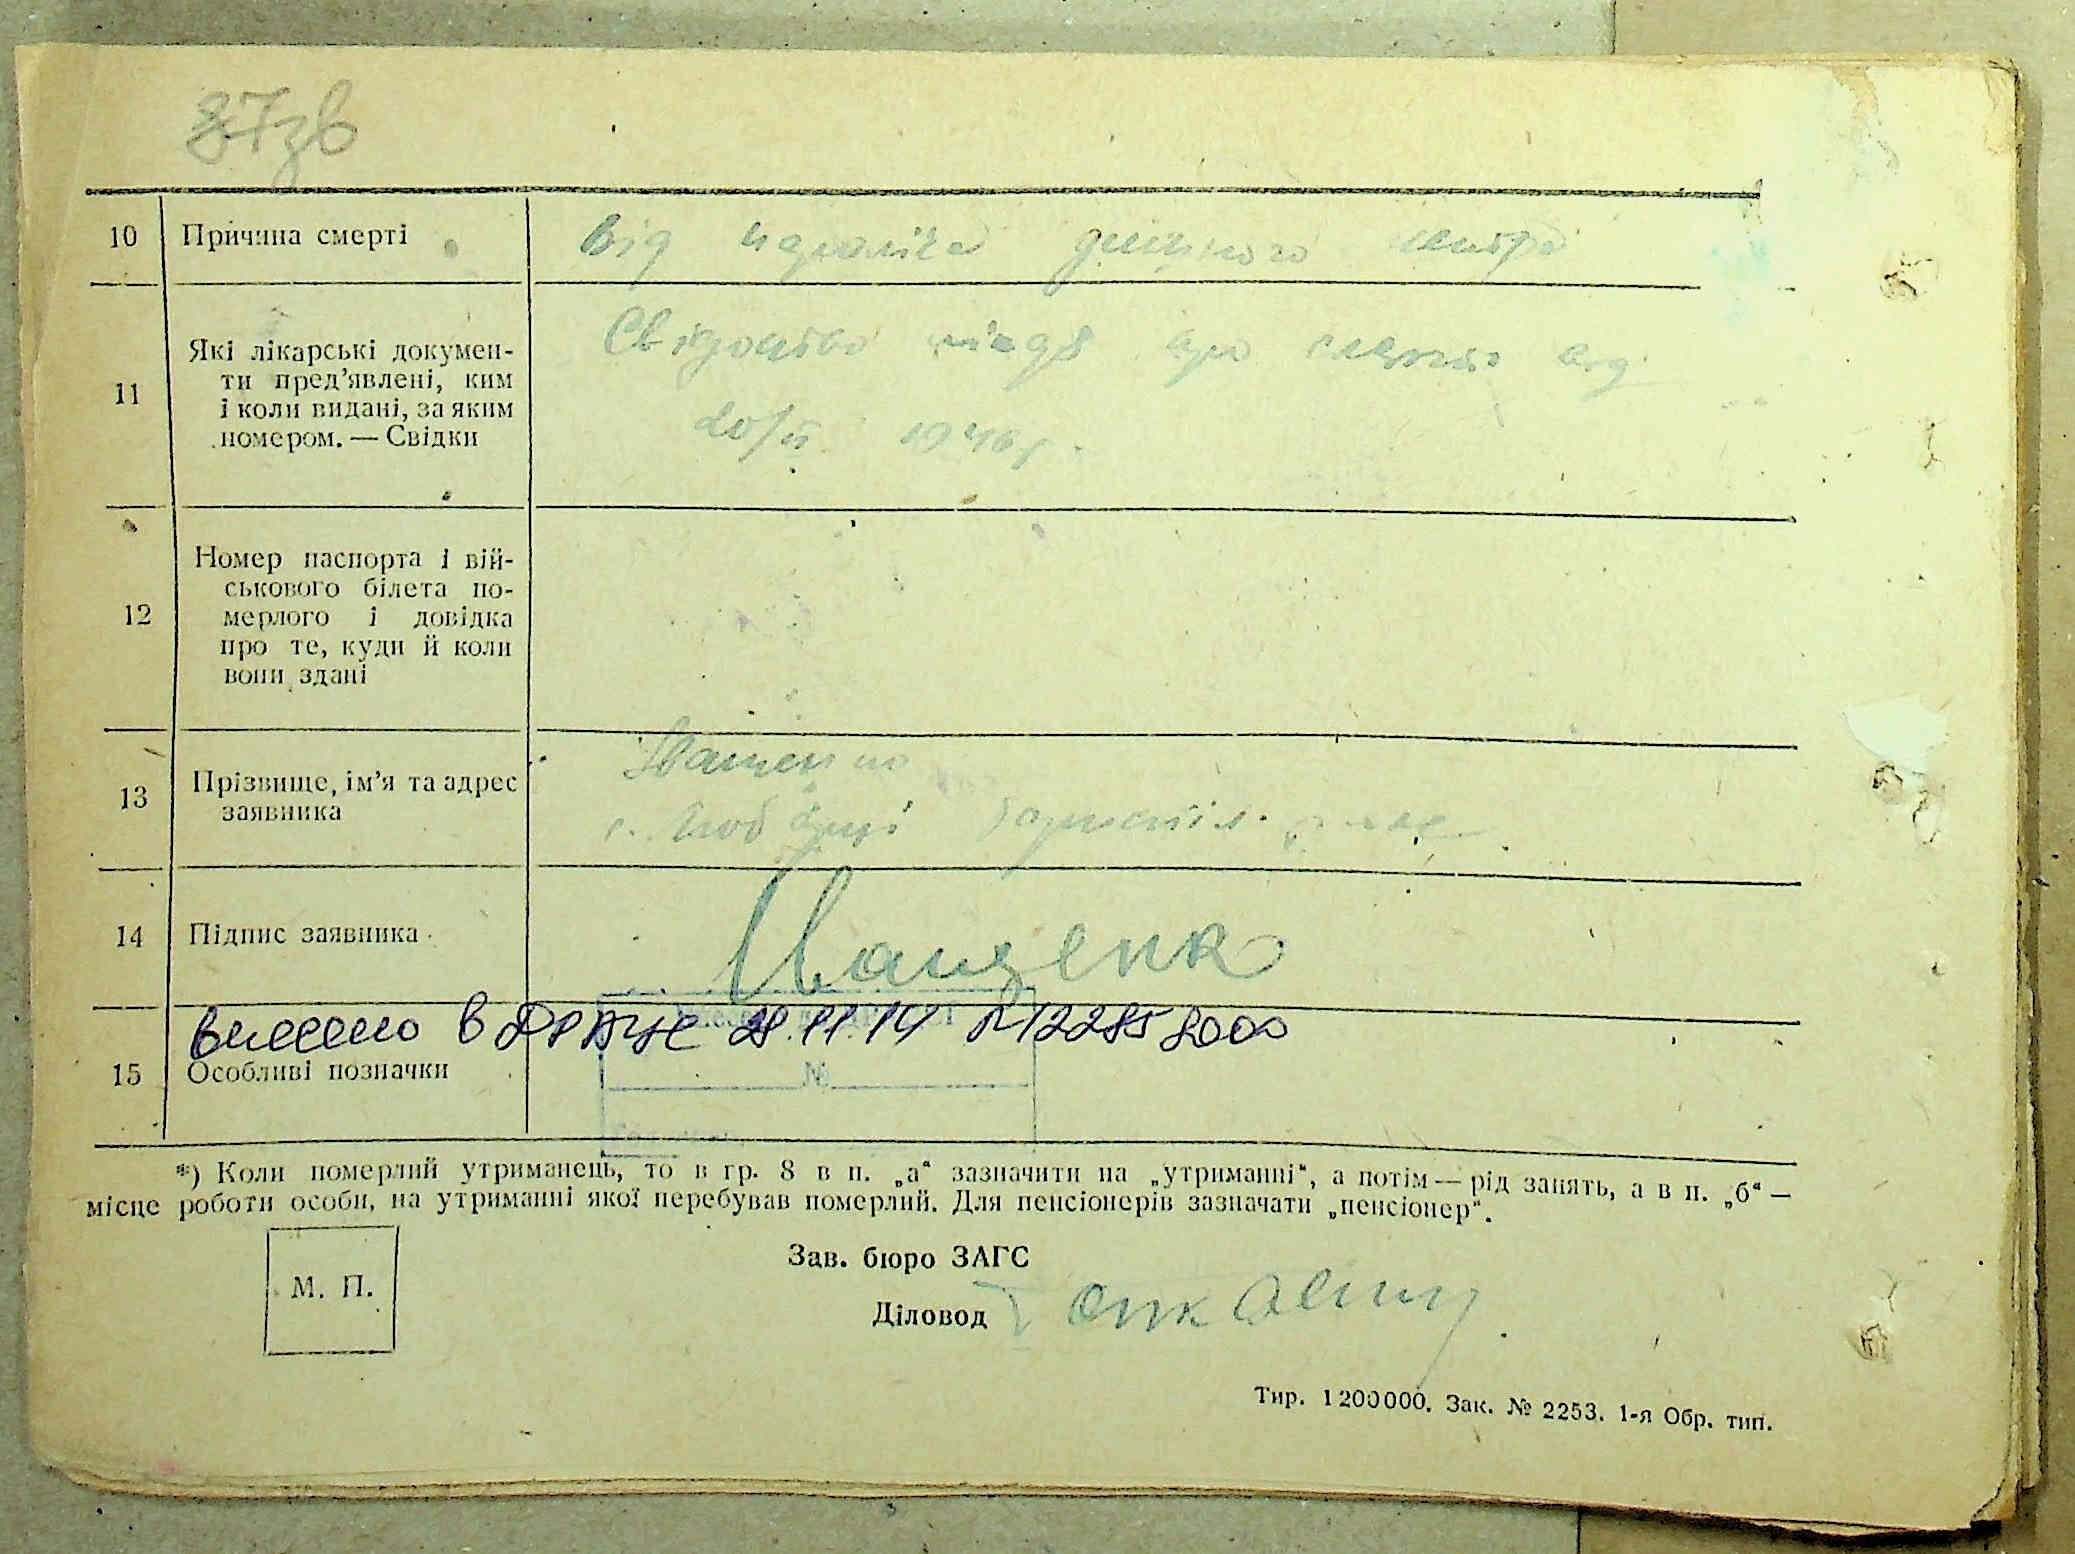 87зв
10 Причина смерті
від параліча дихного центра
11 Які лікарські докумен-
ти пред’явлені, ким
і коли видані, за яким
номером. — Свідки
Свідоцтво про смерть від
1946 р.
12 Номер паспорта і вій-
ськового білета по-
мерлого і довідка
про те, куди й коли
вони здані
13 Прізвище, ім’я та адрес
заявника
Іващенко
с.
14 Підпис заявника
Іващенк
внесено в ДРАЦС 28.11.14 №
15 Особливі позначки
№
*) Коли померлий утриманець, то в гр. 8 в п. „а“ зазначити на „утриманні“, а потім — рід занять, а в п. „б“ —
місце роботи особи, на утриманні якої перебував померлий. Для пенсіонерів зазначати „пенсіонер“.
М. П.
Зав. бюро ЗАГС
Діловод
Тир. 1200000. Зак. № 2253. 1-я Обр. тип.